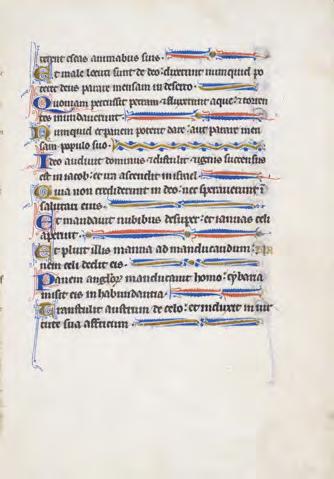 terent escas animabus suis.
Et male locuti sunt de deo: dixerunt nunquid po
terit deus parare mensam in deserto.
Quoniam percussit petram & fluxerunt aque: & torren
tes inundaverunt.
Numquid et panem poterit dare: aut parare men
sam populo suo.
Ideo audivit dominus & distulit: & ignis succensus
est in iacob: et ira ascendit in israel.
Quia non crediderunt in deo: nec speraverunt ī
salutari eius.
Et mandavit nubibus desuper: et ianuas celi
aperuit.
Et pluit illis manna ad manducandum:
nem celi dedit eis.
Panem angl'oꝝ manducavit homo: cybaria
misit eis in habundantia.
Transtulit austrum de celo: et induxit in vir
tute sua affricum.